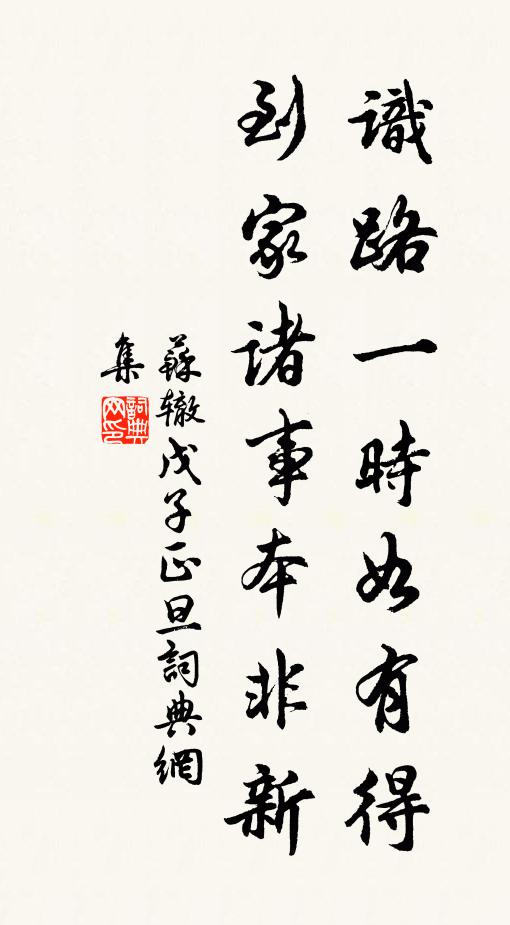 識路一時如有得
到家諸事本非新
蘇轍戊子正旦詞典網
集
詞典
网印